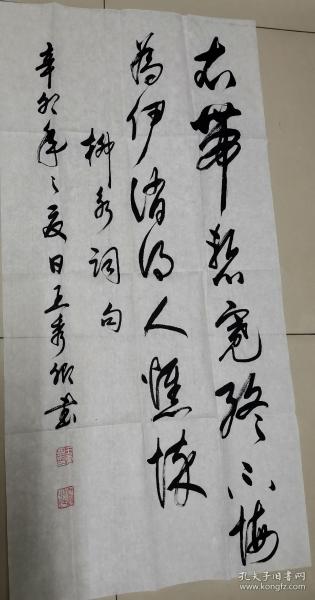 衣带渐宽终不悔
為伊消得人憔悴
柳永词句
辛卯年之夏日王秀�书
孔夫子旧书网
www.kongfz.com